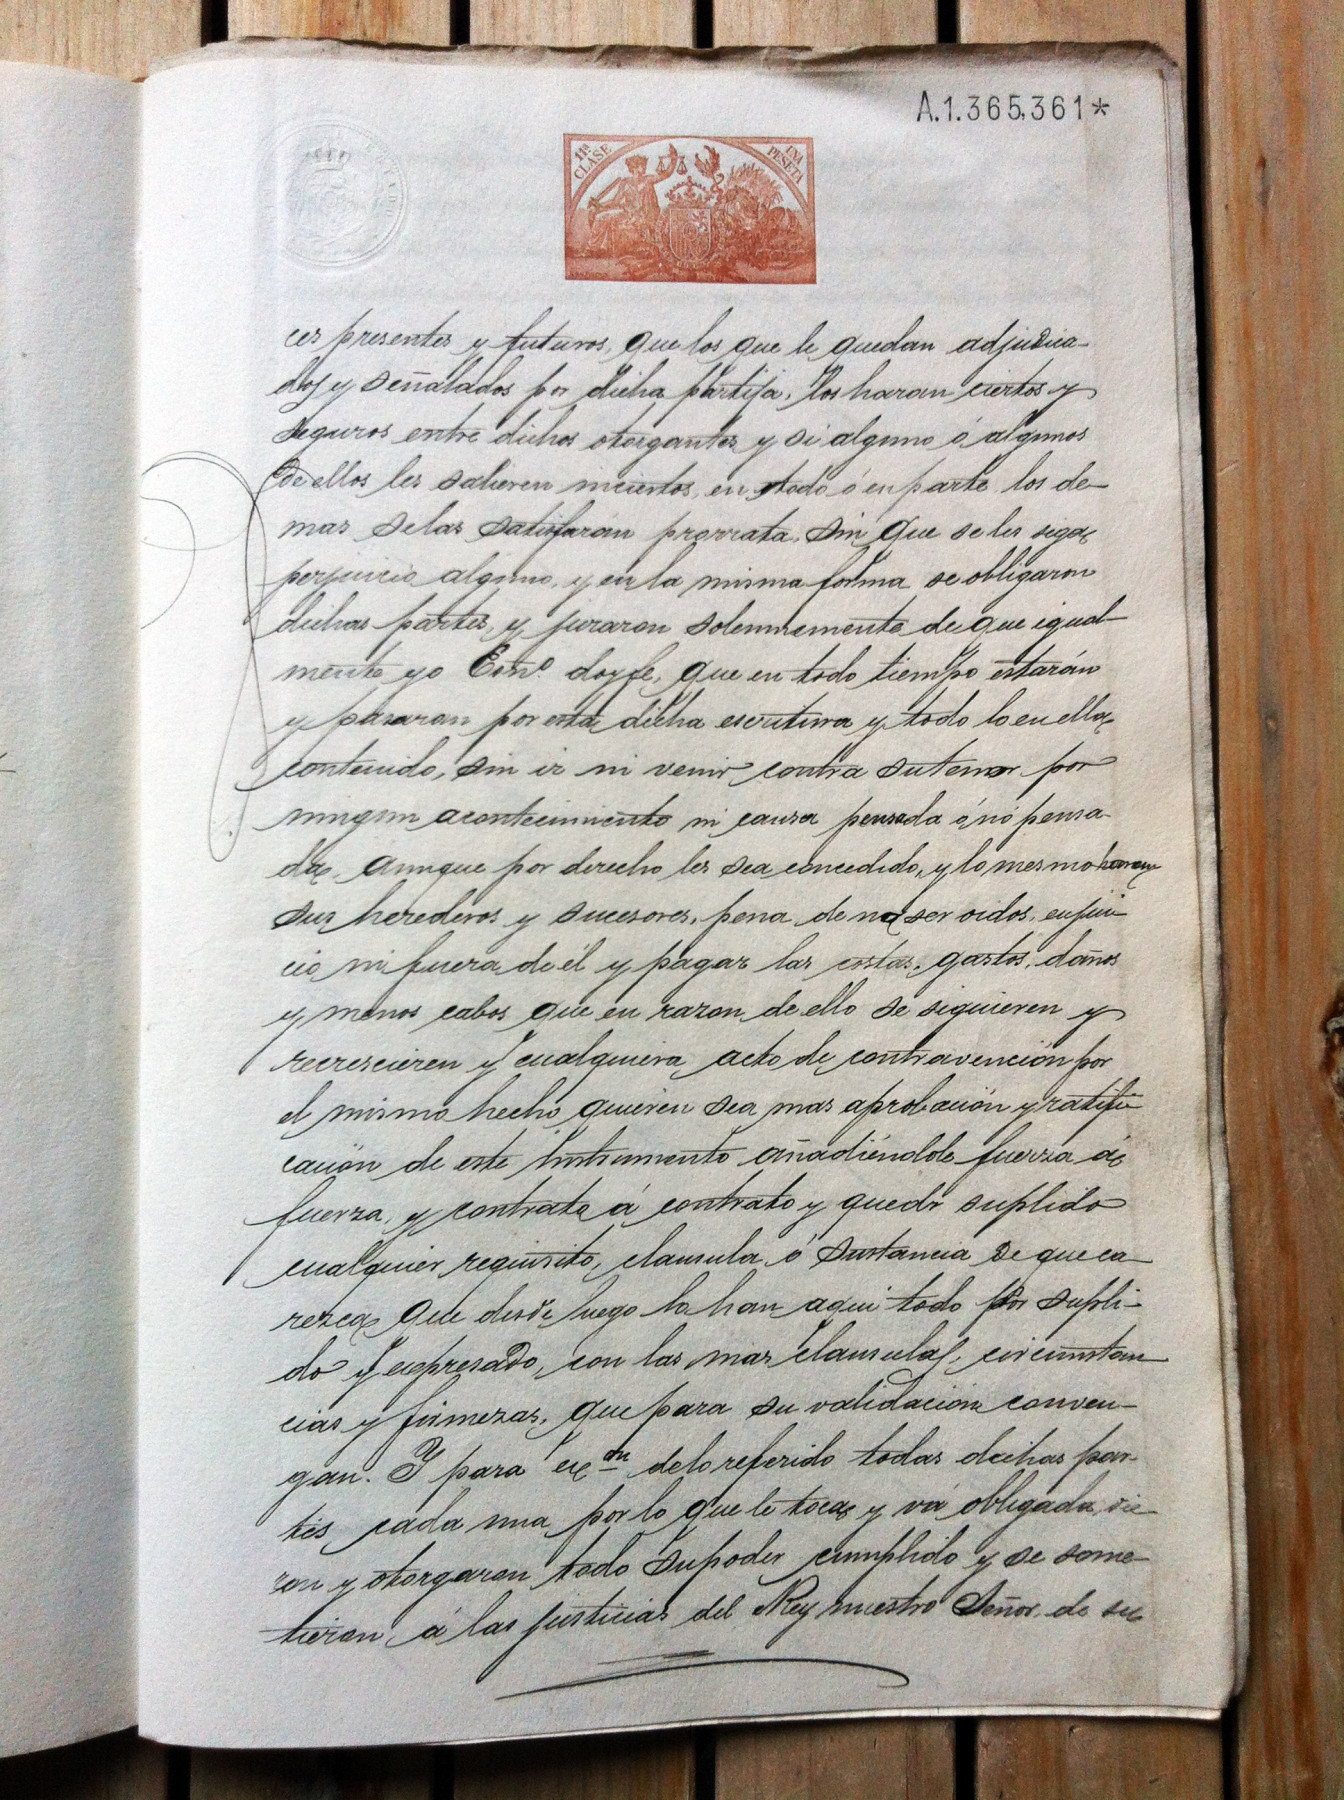 A.1.365,361*
11ª CLASE
UNA PESETA
ces presentes y futuros, que los que le quedan adjudica-
dos y señalados por dicha partija, los haran ciertos y
seguros entre dichos otorgantes y si alguno ó algunos
de ellos les salieren inciertos, en todo ó en parte los de-
mas se las satisfarán prorrata, sin que se les siga
perjuicio alguno, y en la misma forma se obligaron
dichas partes, y juraron solemnemente de que igual-
mente yo Esnº doy fe, que en todo tiempo estarán
y pasaran por esta dicha escritura y todo lo en ella
contenido, sin ir ni venir contra su tenor por
ningun acontecimiento ni causa pensada ó nó pensa-
da, aunque por derecho les sea concedido, y lo mesmo haran
sus herederos y sucesores, pena de no ser oidos, en jui-
cio ni fuera de él y pagar las costas, gastos, daños
y menos cabos que en razon de ello se siguieren y
recrescieren y cualquiera acto de contravención por
el mismo hecho quieren sea mas aprobación y ratifi-
cación de este instrumento añadiéndole fuerza á
fuerza, y contrato á contrato y quedr suplido
cualquier requisito, clausula ó sustancia de que ca-
rezca que desde luego lo han aqui todo por supli-
do y expresado, con las mas clausulas, circunstan-
cias y firmezas, que para su validación conven-
gan. Y para ex.on de lo referido todas dichas par-
tes cada una por lo que le toca y vá obligada, die-
ron y otorgaron todo su poder cumplido y se some-
tieron á las justicias del Rey nuestro Señor de su